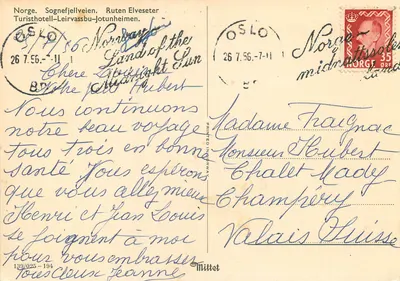 Norge. Sognefjellveien. Ruten Elveseter
Turisthotell-Leirvassbu-Jotunheimen.
OSLO
26 7.56.-11
BR
Norway
Land of the
Midnight Sun
OSLO
26 7.56.-11
Norge-
midnattssolens
land
NORGE
35
ØRE
/7/56
Chère
Hubert
Nous continuons
notre beau voyage
tous trois en bonne
santé Nous espérons
que vous allez mieux
Henri et Jean Louis
se joignent à moi
pour vous embrasser
tous deux Jeanne
Madame Fraignac
Monsieur Hubert
Chalet Mady
Champéry
Valais Suisse
139/925 - 194
Mittet